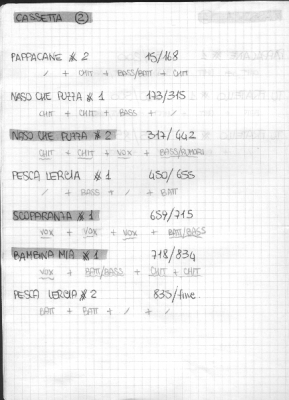 CASSETTA 2
PAPPACANE * 2 15/168
/ + CHIT + BASS/BATT + CHIT
NASO CHE PUZZA * 1 173/315
CHIT + CHIT + BASS + /
NASO CHE PUZZA * 2 317/442
CHIT + CHIT + VOX + BASS/RUMORI
PESCA LERCIA * 1 450/655
/ + BASS + / + BATT
SCOPARANZA * 1 659/715
VOX + VOX + VOX + BATT/BASS
BAMBINA MIA * 1 718/834
VOX + BATT/BASS + CHIT + CHIT
PESCA LERCIA * 2 835/fine.
BATT + BATT + / + /